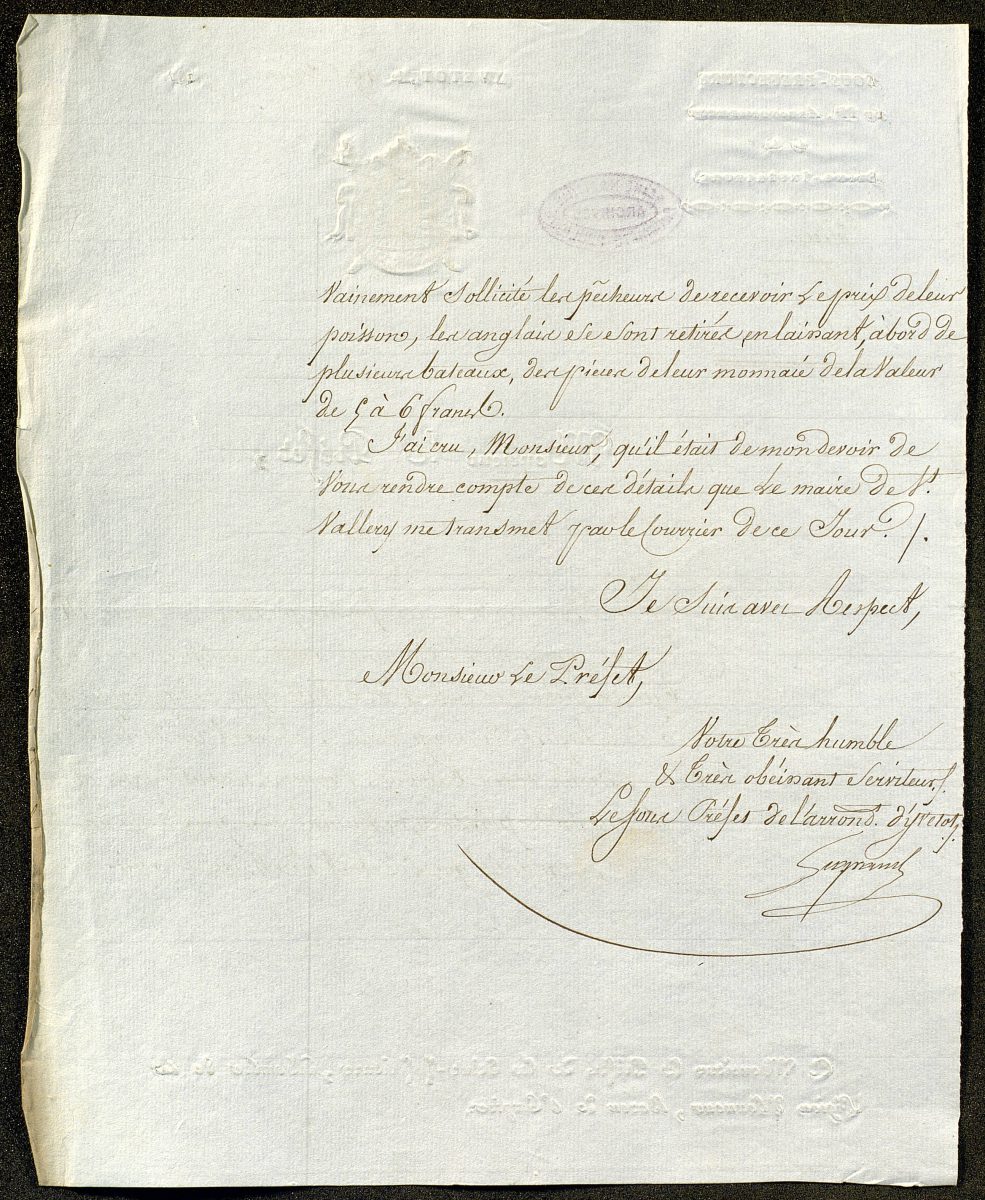 Vainement sollicité les pêcheurs de recevoir le prix de leur
poisson, les anglais se sont retirés en laissant, à bord de
plusieurs bateaux, des pièces de leur monnaie de la Valeur
de 5 à 6 francs.
J'ai cru, Monsieur, qu'il était de mon devoir de
Vous rendre compte de ces détails que Le maire de St.
Vallery me transmet par le Courrier de ce Jour. /.
Je Suis avec Respect,
Monsieur Le Préfet,
Votre Très humble
& Très obéissant Serviteur,
Le Sous Préfet de l'arrond.t d'yvetot,